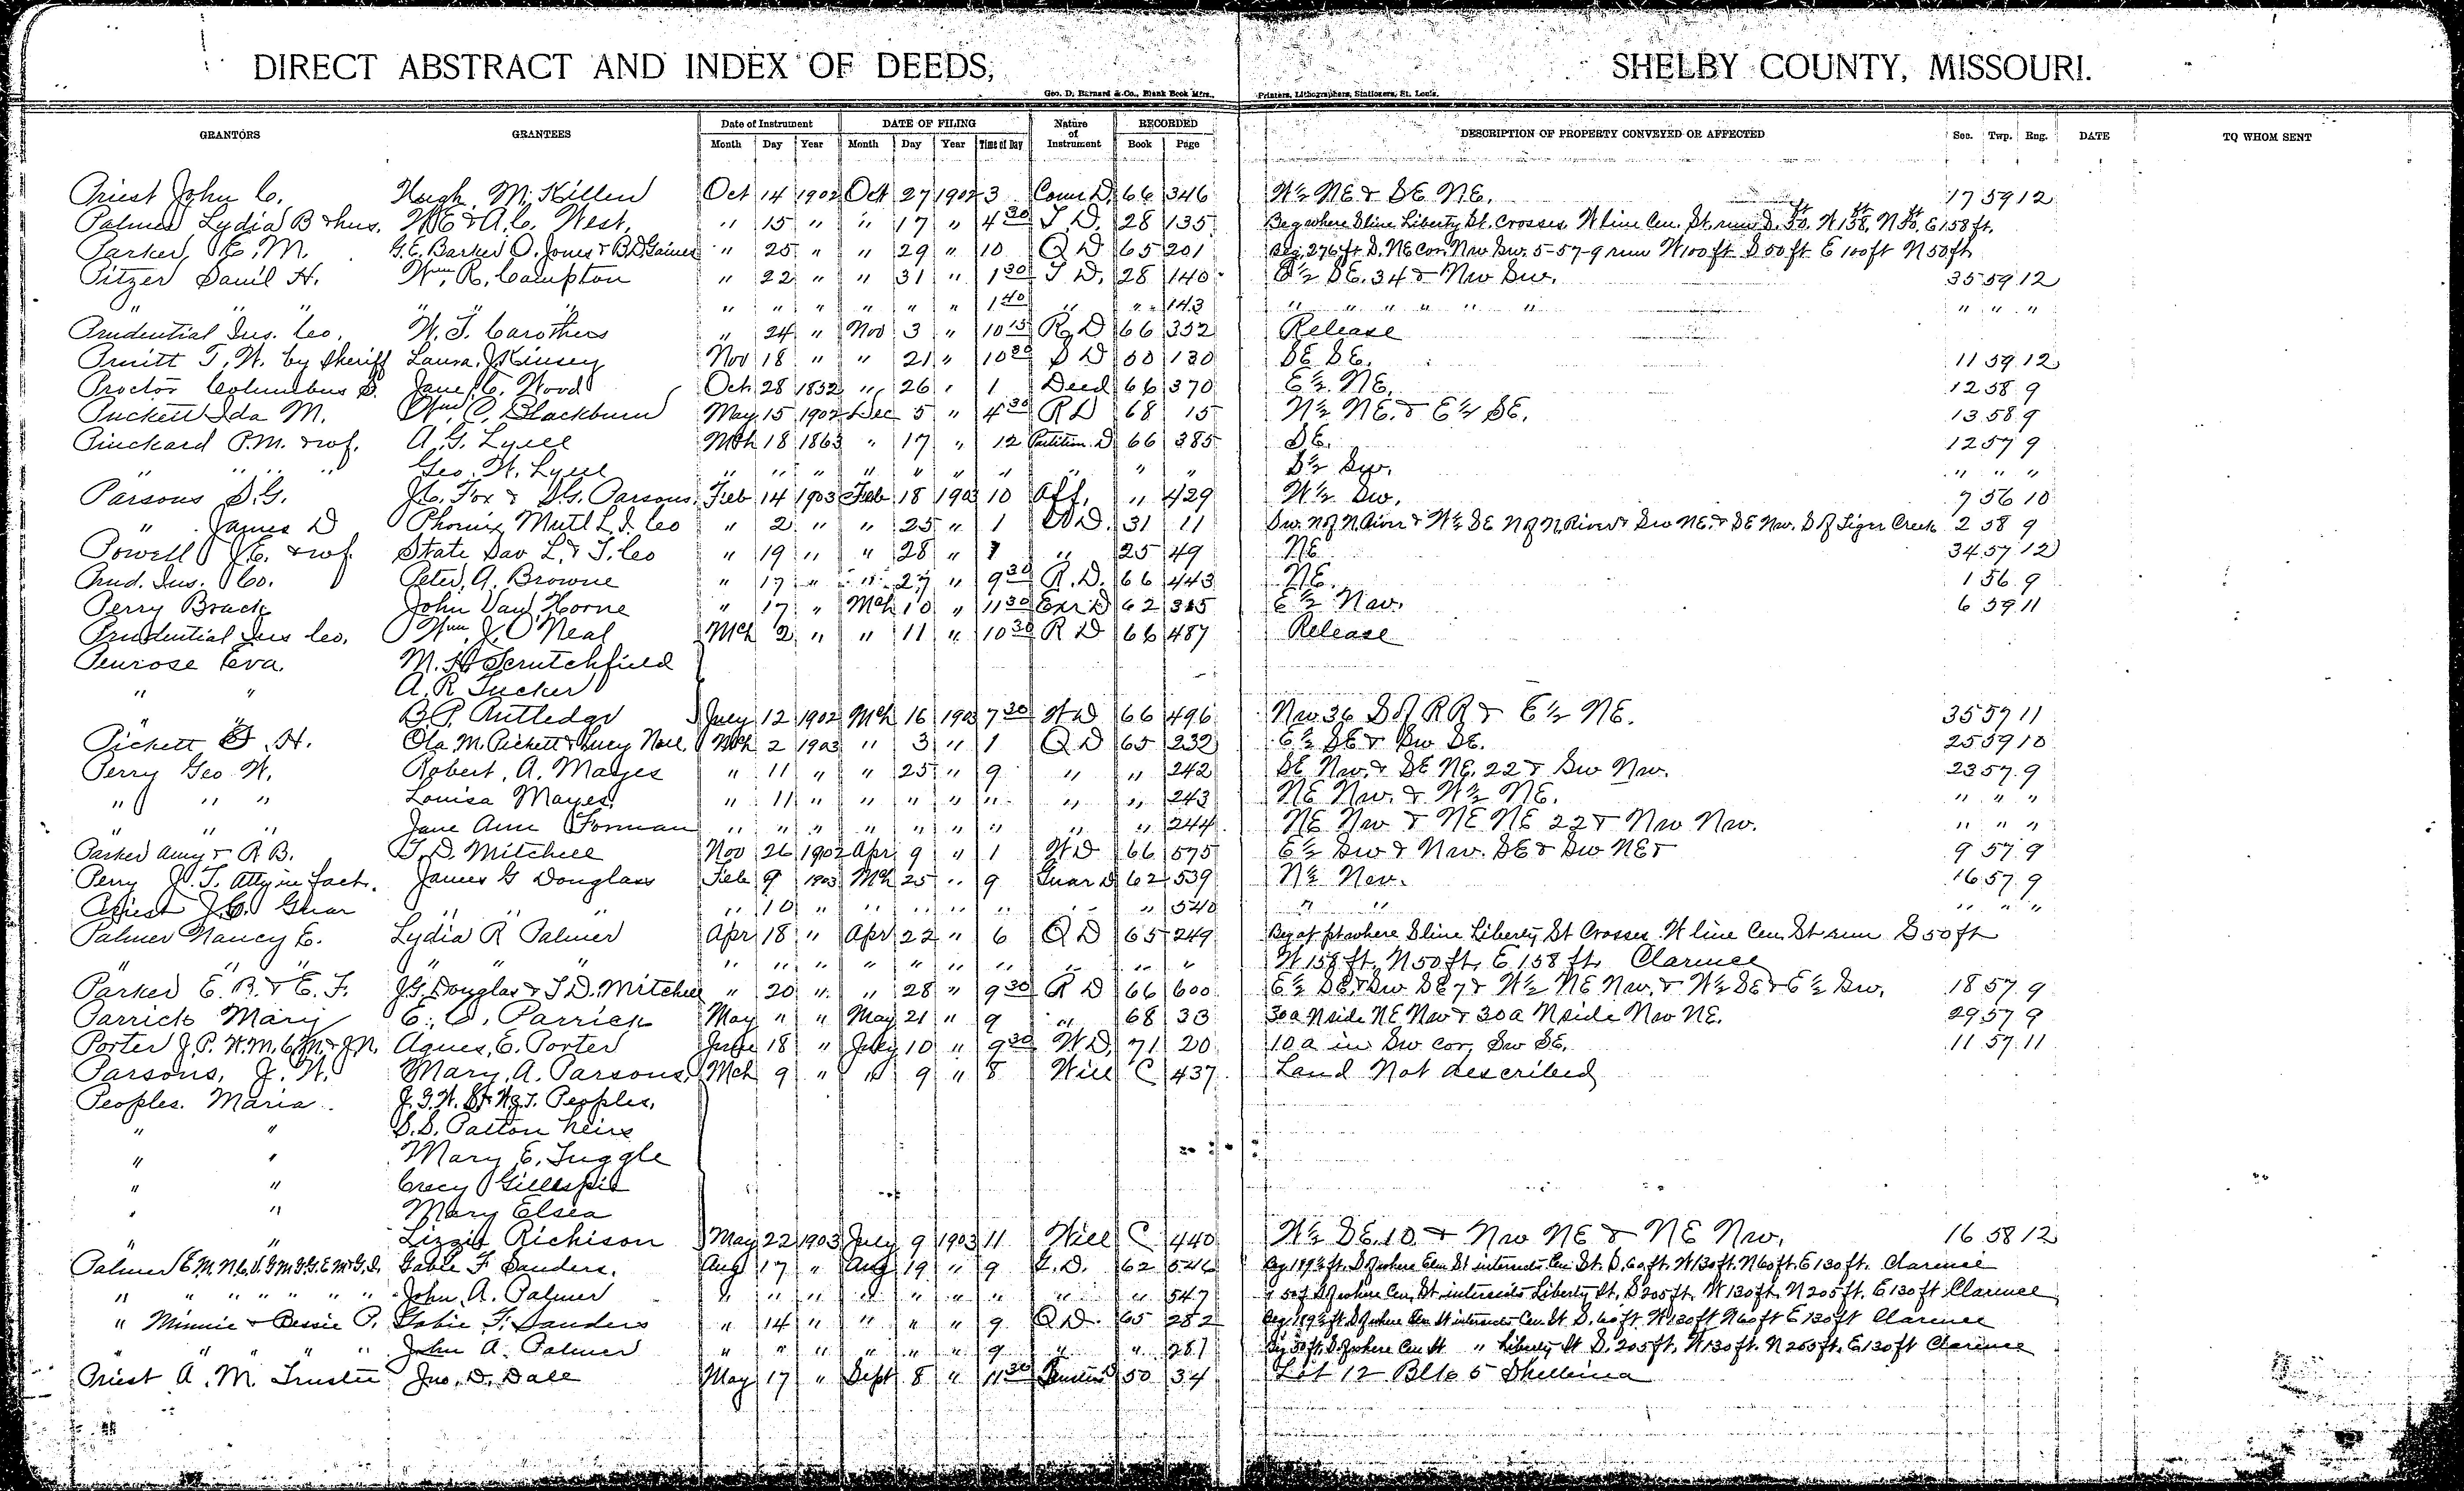 DIRECT ABSTRACT AND INDEX OF DEEDS, SHELBY COUNTY, MISSOURI.
Geo. D. Barnard & Co., Blank Book Mfrs., Printers, Lithographers, Stationers, St. Louis.
GRANTORS GRANTEES Date of Instrument DATE OF FILING Nature of Instrument RECORDED DESCRIPTION OF PROPERTY CONVEYED OR AFFECTED Sec. Twp. Rng. DATE TO WHOM SENT
Month Day Year Month Day Year Time of Day Book Page
Priest John C. Hugh McKillen Oct 14 1902 Oct 27 1902 3 Com D. 66 346 W½ NE & SE NE. 17 59 12
Palmer Lydia B & hus. W.E & A.C. West, " 15 " " 17 " 4 30 T. D. 28 135 Beg where S line Liberty St. Crosses W line Cen. St. run S. 50, W 158, N 50, E 158 ft.
Parker E. M. G.E. Barker O. Jones & B.D. Gaines " 25 " " 29 " 10 Q D 65 201 Beg. 276 ft S. NE Cor. Nw Sw. 5-57-9 run W 100 ft S 50 ft E 100 ft N 50 ft
Pitzer Danil H. Wm. R. Compton " 22 " " 31 " 1 30 T D. 28 140 E½ SE. 34 & Nw Sw. 35 59 12
" " " " " " " " " " 1 40 " " 143 " " " " " " " " "
Prudential Ins. Co. W. T. Carothers " 24 " Nov 3 " 10 15 R D 66 352 Release
Pruitt T. W. by Sheriff Laura J. Kinsey Nov 18 " " 21 " 10 20 S D 50 130 SE SE. 11 59 12
Proctor Columbus S. Jane C. Wood Oct 28 1852 " 26 " 1 Deed 66 370 E½ NE. 12 58 9
Puckett Ida M. Wm C. Blackburn May 15 1902 Dec 5 " 4 30 R D 68 15 N½ NE. & E½ SE. 13 58 9
Pinckard P.M. & wf. A. G. Lyell Mch 18 1863 " 17 " 12 Partition D 66 385 SE. 12 57 9
" " " Geo. W. Lyell " " " " " " " " " " S½ Sw. " " "
Parsons S. G. J.C. Fox & S.G. Parsons. Feb 14 1903 Feb 18 1903 10 Aff. " 429 W½ Sw. 9 56 10
" James D Phoenix Mutl L. I. Co " 2 " " 25 " 1 D. 31 11 Sw. N of N River & W½ SE N of N. River & Sw NE. & SE Nw. S of Tiger Creek 2 58 9
Powell J.E. & wf. State Sav L. & T. Co " 19 " " 28 " 1 " 25 49 NE 34 57 12
Prud. Ins. Co. Peter A. Browne " 17 " " 27 " 9 30 R. D. 66 443 NE. 1 56 9
Perry Brack John Van Horne " 17 " Mch 10 " 11 30 Exr D 62 315 E½ Nw. 6 59 11
Prudential Ins Co. Wm. J. O'Neal Mch 2 " " 11 " 10 30 R D 66 487 Release
Penrose Eva. M. H Scrutchfield
" " A. R Tucker
" " B.P. Rutledge July 12 1902 Mch 16 1903 7 30 W D 66 496 Nw 36 S of RR & E½ NE. 35 57 11
Pickett H. Ola M. Pickett & Lucy Noel. Mch 2 1903 " 3 " 1 Q D 65 232 E½ SE & Sw SE. 25 59 10
Perry Geo W. Robert. A. Mayes " 11 " " 25 " 9 " " 242 SE Nw. & SE NE. 22 & Sw Nw. 23 57 9
" " " Louisa Mayes. " 11 " " " " " " " 243 NE Nw. & W½ NE. " " "
" " " Jane Ann Forman " " " " " " " " " 244 NE Nw & NE NE 22 & Nw Nw. " " "
Parker Amy & R B. T. D. Mitchell Nov 26 1902 Apr 9 " 1 W D 66 575 E½ Sw & Nw. SE & Sw NE & 9 57 9
Perry J. T. Atty in fact. James G Douglass Feb 9 1903 Mch 25 " 9 Guar D 62 539 N½ Nw. 16 57 9
Priest J.C. Guar " " " " 10 " " " " " " " 540 " " " " "
Palmer Nancy E. Lydia R Palmer Apr 18 " Apr 22 " 6 Q D 65 249 Beg at pt where S line Liberty St Crosses W line Cen St run S 50 ft
" " " " " " " " " " " " " " " " W 158 ft. N 50 ft. E 158 ft. Clarence
Parker E. R. & E. F. J.G. Douglas & T.D. Mitchell " 20 " " 28 " 9 30 R D 66 600 E½ SE & Sw SE 7 & W½ NE Nw. & W½ SE & E½ Sw. 18 57 9
Parrick Mary E. O. Parrick May " " May 21 " 9 " 68 33 30a N side NE Nw & 30a N side Nw NE. 29 57 9
Porter J.P. W.M. C.M. & J.N. Agnes, E. Porter June 18 " July 10 " 9 30 W D. 71 20 10 a in Sw cor, Sw SE. 11 57 11
Parsons, J. W. Mary, A. Parsons, Mch 9 " " 9 " 8 Will C 437 Land Not described
Peoples. Maria Peoples,
" " S.S. Patton heirs
" " Mary E. Tuggle
" " Crecy Gillespie
" " Mary Elsea
" " Lizzie Richison May 22 1903 July 9 1903 11 Will C 440 W½ SE. 10 & Nw NE & NE Nw. 16 58 12
Palmer Gabie F Sanders. Aug 17 " Aug 19 " 9 G. D. 62 546 Beg 189½ ft. S of where Elm St intersects Cen St. S. 60 ft. W 130 ft. N 60 ft. E 130 ft. Clarence
" " " " " " " John, A. Palmer " " " " " " " " " 547 " 50 ft S of where Cen, St. intersects Liberty St, S 205 ft, W 130 ft, N 205 ft. E 130 ft Clarence
" Minnie & Bessie P. Gabie F. Sanders " 14 " " " " 9 Q D. 65 282 Beg. 189½ ft. S of where Elm St intersects Cen. St. S. 60 ft W 130 ft N 60 ft E 130 ft Clarence
" " " " " John A. Palmer " " " " " " 9 " " 281 Beg 50 ft. S. of where Cen St " Liberty St S. 205 ft. W 130 ft. N 205 ft, E 130 ft Clarence
Priest A. M. Trustee Jno. D. Dale May 17 " Sept 8 " 11 30 50 34 Lot 12 Blk 5 Shelbina